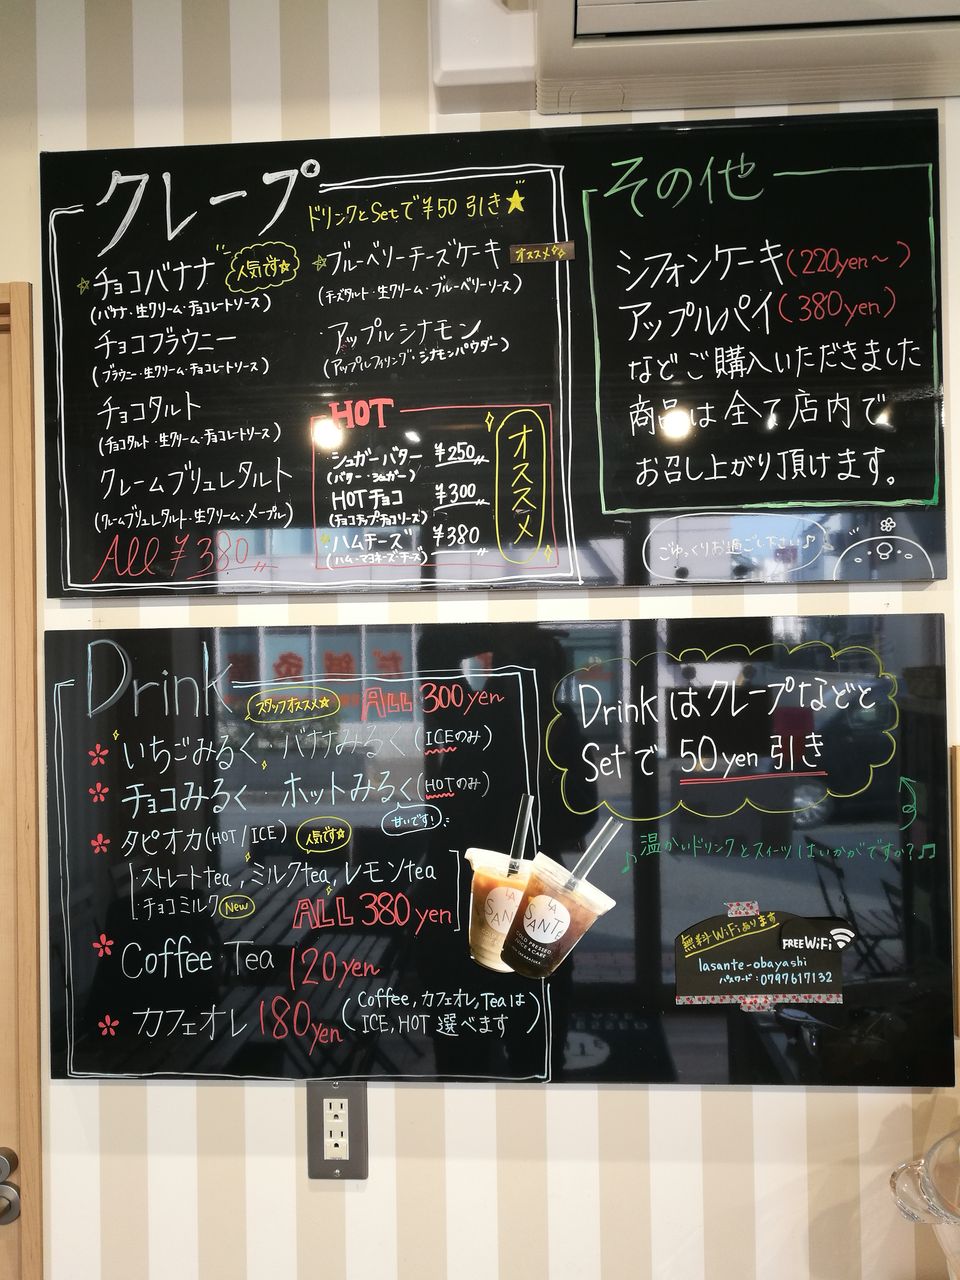 クレープ
ドリンクとSetで¥50引き★
☆チョコバナナ
人気です☆
(バナナ・生クリーム・チョコレートソース)
チョコブラウニー
(ブラウニー・生クリーム・チョコレートソース)
チョコタルト
(チョコタルト・生クリーム・チョコレートソース)
クレームブリュレタルト
(クレームブリュレタルト・生クリーム・メープル)
All ¥380
☆ブルーベリーチーズケーキ
オススメ
(チーズタルト・生クリーム・ブルーベリーソース)
・アップルシナモン
(アップルフィリング・シナモンパウダー)
HOT
オススメ
シュガーバター ¥250
(バター・シュガー)
HOTチョコ ¥300
(チョコチップチョコソース)
ハムチーズ ¥380
(ハム・マヨネーズ・チーズ)
その他
シフォンケーキ(220yen〜)
アップルパイ(380yen)
などご購入いただきました
商品は全て店内で
お召し上がり頂けます。
ごゆっくりお過ごし下さい♪
Drink
スタッフオススメ☆
ALL 300yen
いちごみるく・バナナみるく(ICEのみ)
チョコみるく・ホットみるく(HOTのみ)
甘いです!
タピオカ(HOT/ICE)
人気です☆
・ストレートtea,ミルクtea,レモンtea
・チョコミルク New
ALL 380yen
Coffee・Tea 120yen
カフェオレ 180yen
(Coffee,カフェオレ,Teaは
ICE,HOT 選べます)
LA
SANTÉ
COLD PRESSED
JUICE & CAFE
Drinkはクレープなどと
Setで 50yen 引き
♪温かいドリンクとスイーツはいかがですか?♫
無料WiFiあります
FREE WiFi
lasante-obayashi
パスワード:0797617132